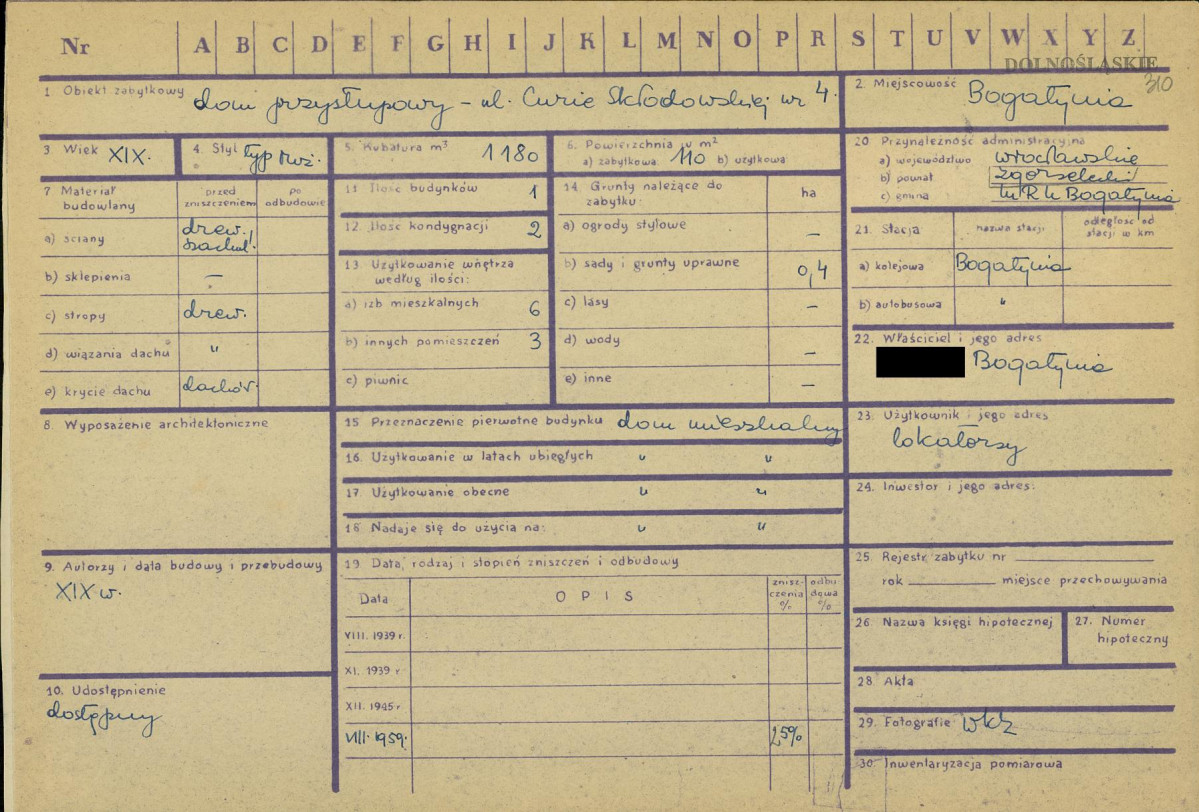 Nr A B C D E F G H I J K L M N O P R S T U V W X Y Z
DOLNOŚLĄSKIE
310
1 Obiekt zabytkowy dom przysłupowy - ul. Curie Skłodowskiej nr 4.
2. Miejscowość Bogatynia
3. Wiek XIX.
4. Styl typ
5. Kubatura m³ 1180
6. Powierzchnia w m²
a) zabytkowa 110 b) użytkowa
7 Materiał budowlany
przed zniszczeniem
po odbudowie
a) ściany drew. / szachul.
b) sklepienia –
c) stropy drew.
d) wiązania dachu "
e) krycie dachu dachów.
8. Wyposażenie architektoniczne
9. Autorzy i data budowy i przebudowy
XIX w.
10. Udostępnienie
dostępny
11 Ilość budynków 1
12. Ilość kondygnacji 2
13. Użytkowanie wnętrza
według ilości:
a) izb mieszkalnych 6
b) innych pomieszczeń 3
c) piwnic
14. Grunty należące do
zabytku: ha
a) ogrody stylowe –
b) sady i grunty uprawne 0,4
c) lasy –
d) wody –
e) inne –
15 Przeznaczenie pierwotne budynku dom mieszkalny
16. Użytkowanie w latach ubiegłych " "
17. Użytkowanie obecne " "
18 Nadaje się do użycia na: " "
19 Data, rodzaj i stopień zniszczeń i odbudowy
Data OPIS znisz- czenia % odbu dowa %
VIII. 1939 r.
XI. 1939 r
XII. 1945 r
VIII. 1959. 25%
20 Przynależność administracyjna
a) województwo wrocławskie
b) powiat zgorzelecki
c) gmina Bogatynia
21. Stacja nazwa stacji odległość od stacji w km
a) kolejowa Bogatynia
b) autobusowa "
22. Właściciel i jego adres
Bogatynia
23. Użytkownik i jego adres
lokatorzy
24. Inwestor i jego adres:
25. Rejestr zabytku nr
rok miejsce przechowywania
26. Nazwa księgi hipotecznej
27. Numer
hipoteczny
28 Akta
29. Fotografie WKZ
30. Inwentaryzacja pomiarowa